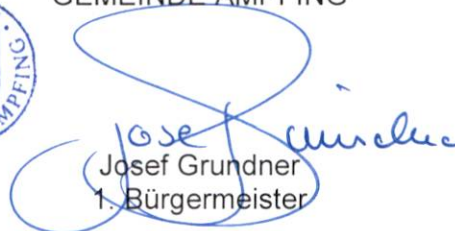 GEMEINDE AMPFING
AMPFING
Josef
Josef Grundner
1. Bürgermeister